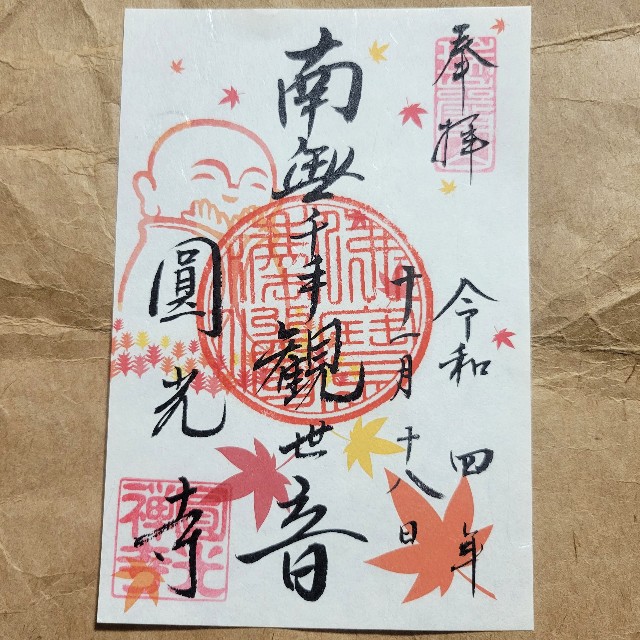 奉拝
令和四年
十一月十八日
南無千手観世音
圓光寺
圓光禅寺